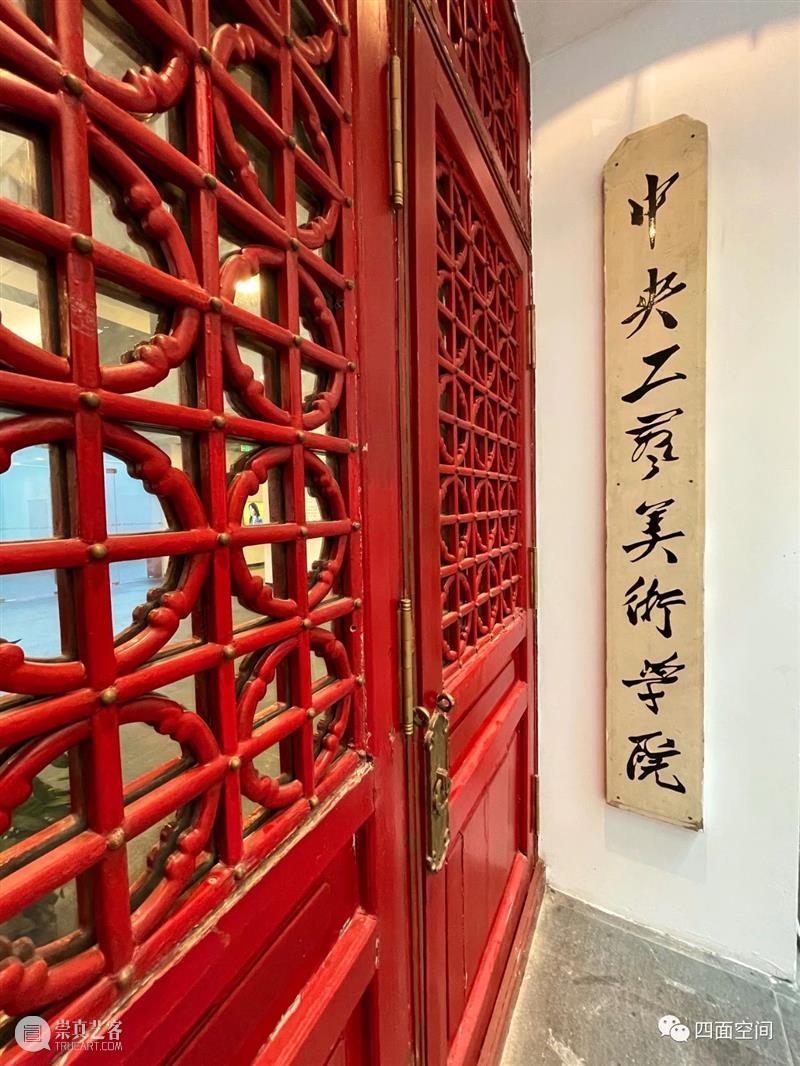 中央工艺美術学院
崇真艺客
TRUEART.COM
四面空间